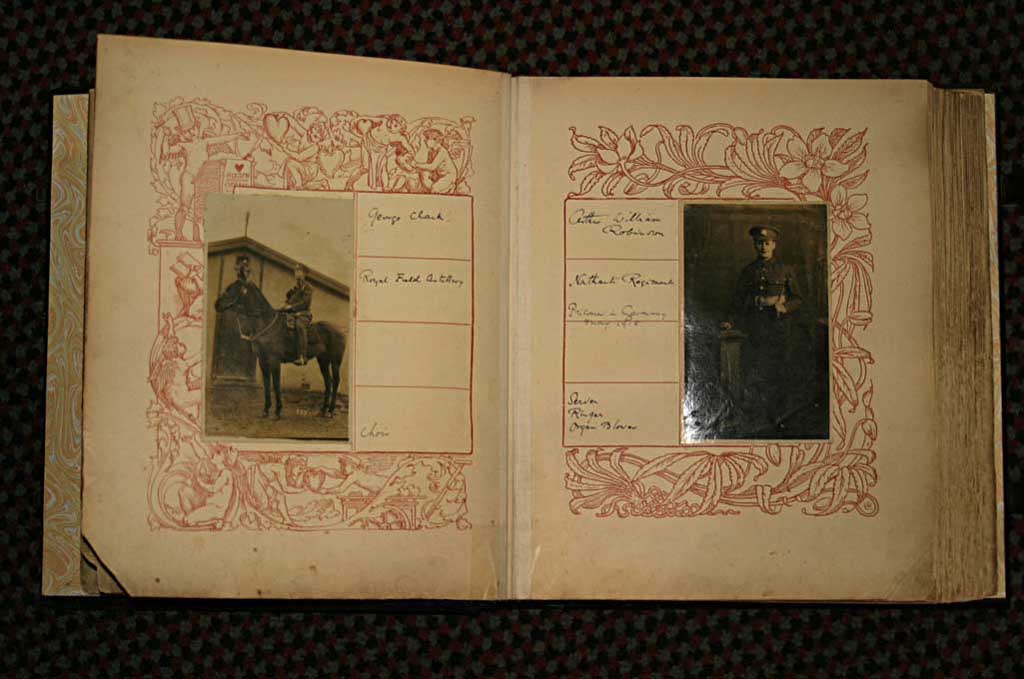 George Clark.
Royal Field Artillery
Choir
Arthur William
Robinson
Northants Regiment
Prisoner in Germany
May 1918
Server
Ringer
Organ Blower